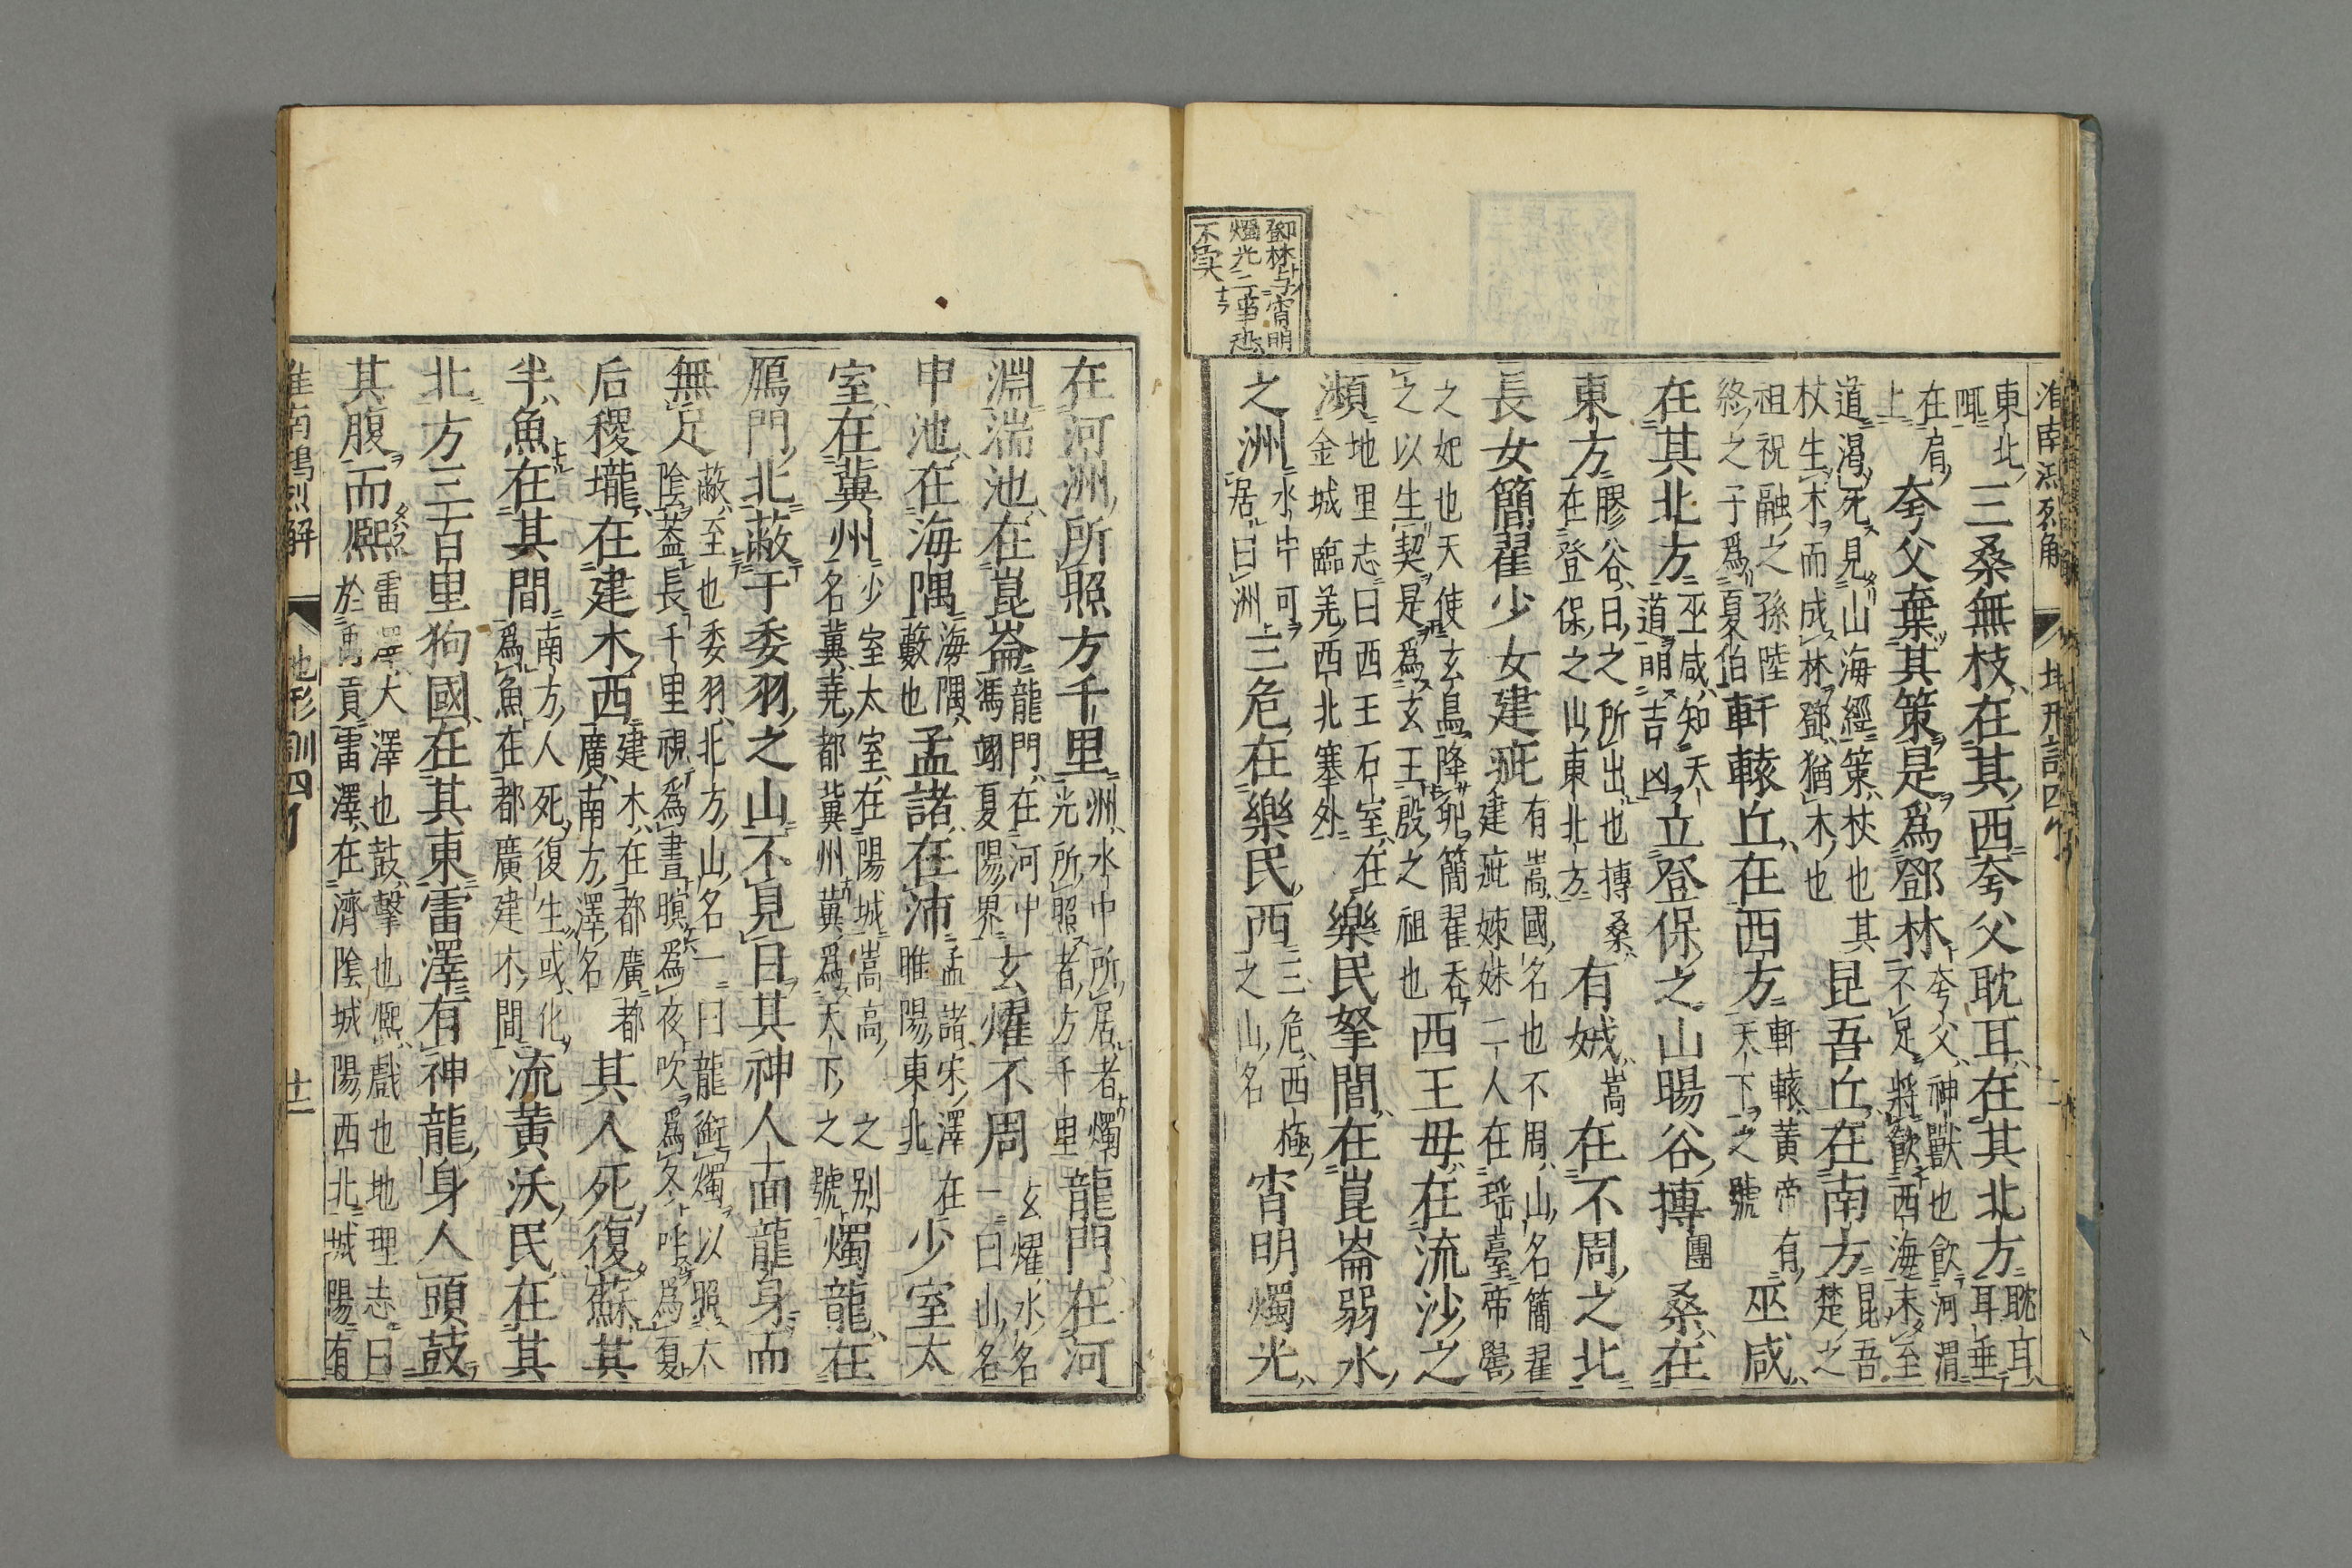 淮南鴻烈解 地形訓四
東北㖞三桑無枝在其西夸父耽耳在其北方耽耳耳垂
在肩上夸父棄其策是爲鄧林夸父神獸也飲河渭不足將飲西海未至
道渴死見山海經策杖也其杖生木而成林鄧猶木也昆吾丘在南方昆吾楚之
祖祝融之孫陸終之子爲夏伯軒轅丘在西方軒轅黃帝有天下之號巫咸
在其北方巫咸知天道明吉凶立登保之山暘谷摶團桑在
東方膠谷日之所出也摶桑在登保之山東北方有娀嵩在不周之北
長女簡翟少女建疵有嵩國名也不周山名簡翟建疵姊妹二人在瑤臺帝嚳
之妃也天使玄鳥降卵簡翟吞之以生契是爲玄王殷之祖也西王母在流沙之
瀕地里志曰西王石室在金城臨羌西北塞外樂民拏閭在崑崙弱水
之洲水中可居曰洲三危在樂民西三危西極之山名宵明燭光
鄧林与宵明
燭光二事也
不實
在河洲所照方千里洲水中所居者燭光所照者方千里龍門在河
淵湍池在崑崙龍門在河中馮翊夏陽界玄燿不周玄燿水名一曰山名
申池在海隅海隅藪也孟諸在沛孟諸宋澤在睢陽東北少室太
室在冀州少室太室在陽城嵩高之别名冀堯都冀州冀爲天下之號燭龍在
鴈門北蔽于委羽之山不見日其神人面龍身而
無足蔽至也委羽北方山名一曰龍銜燭以照太陰蓋長千里視爲晝暝爲夜吹爲冬呼爲夏
后稷壠在建木西建木在都廣都廣南方澤名其人死復蘇其
半魚在其間南方人死復生或化爲魚在都廣建木間流黄沃民在其
北方三百里狗國在其東雷澤有神龍身人頭鼓
其腹而熙雷澤大澤也鼓擊也熙戲也地理志曰於禹貢雷澤在濟陰城陽西北城陽有
淮南鴻烈解 地形訓四 十二